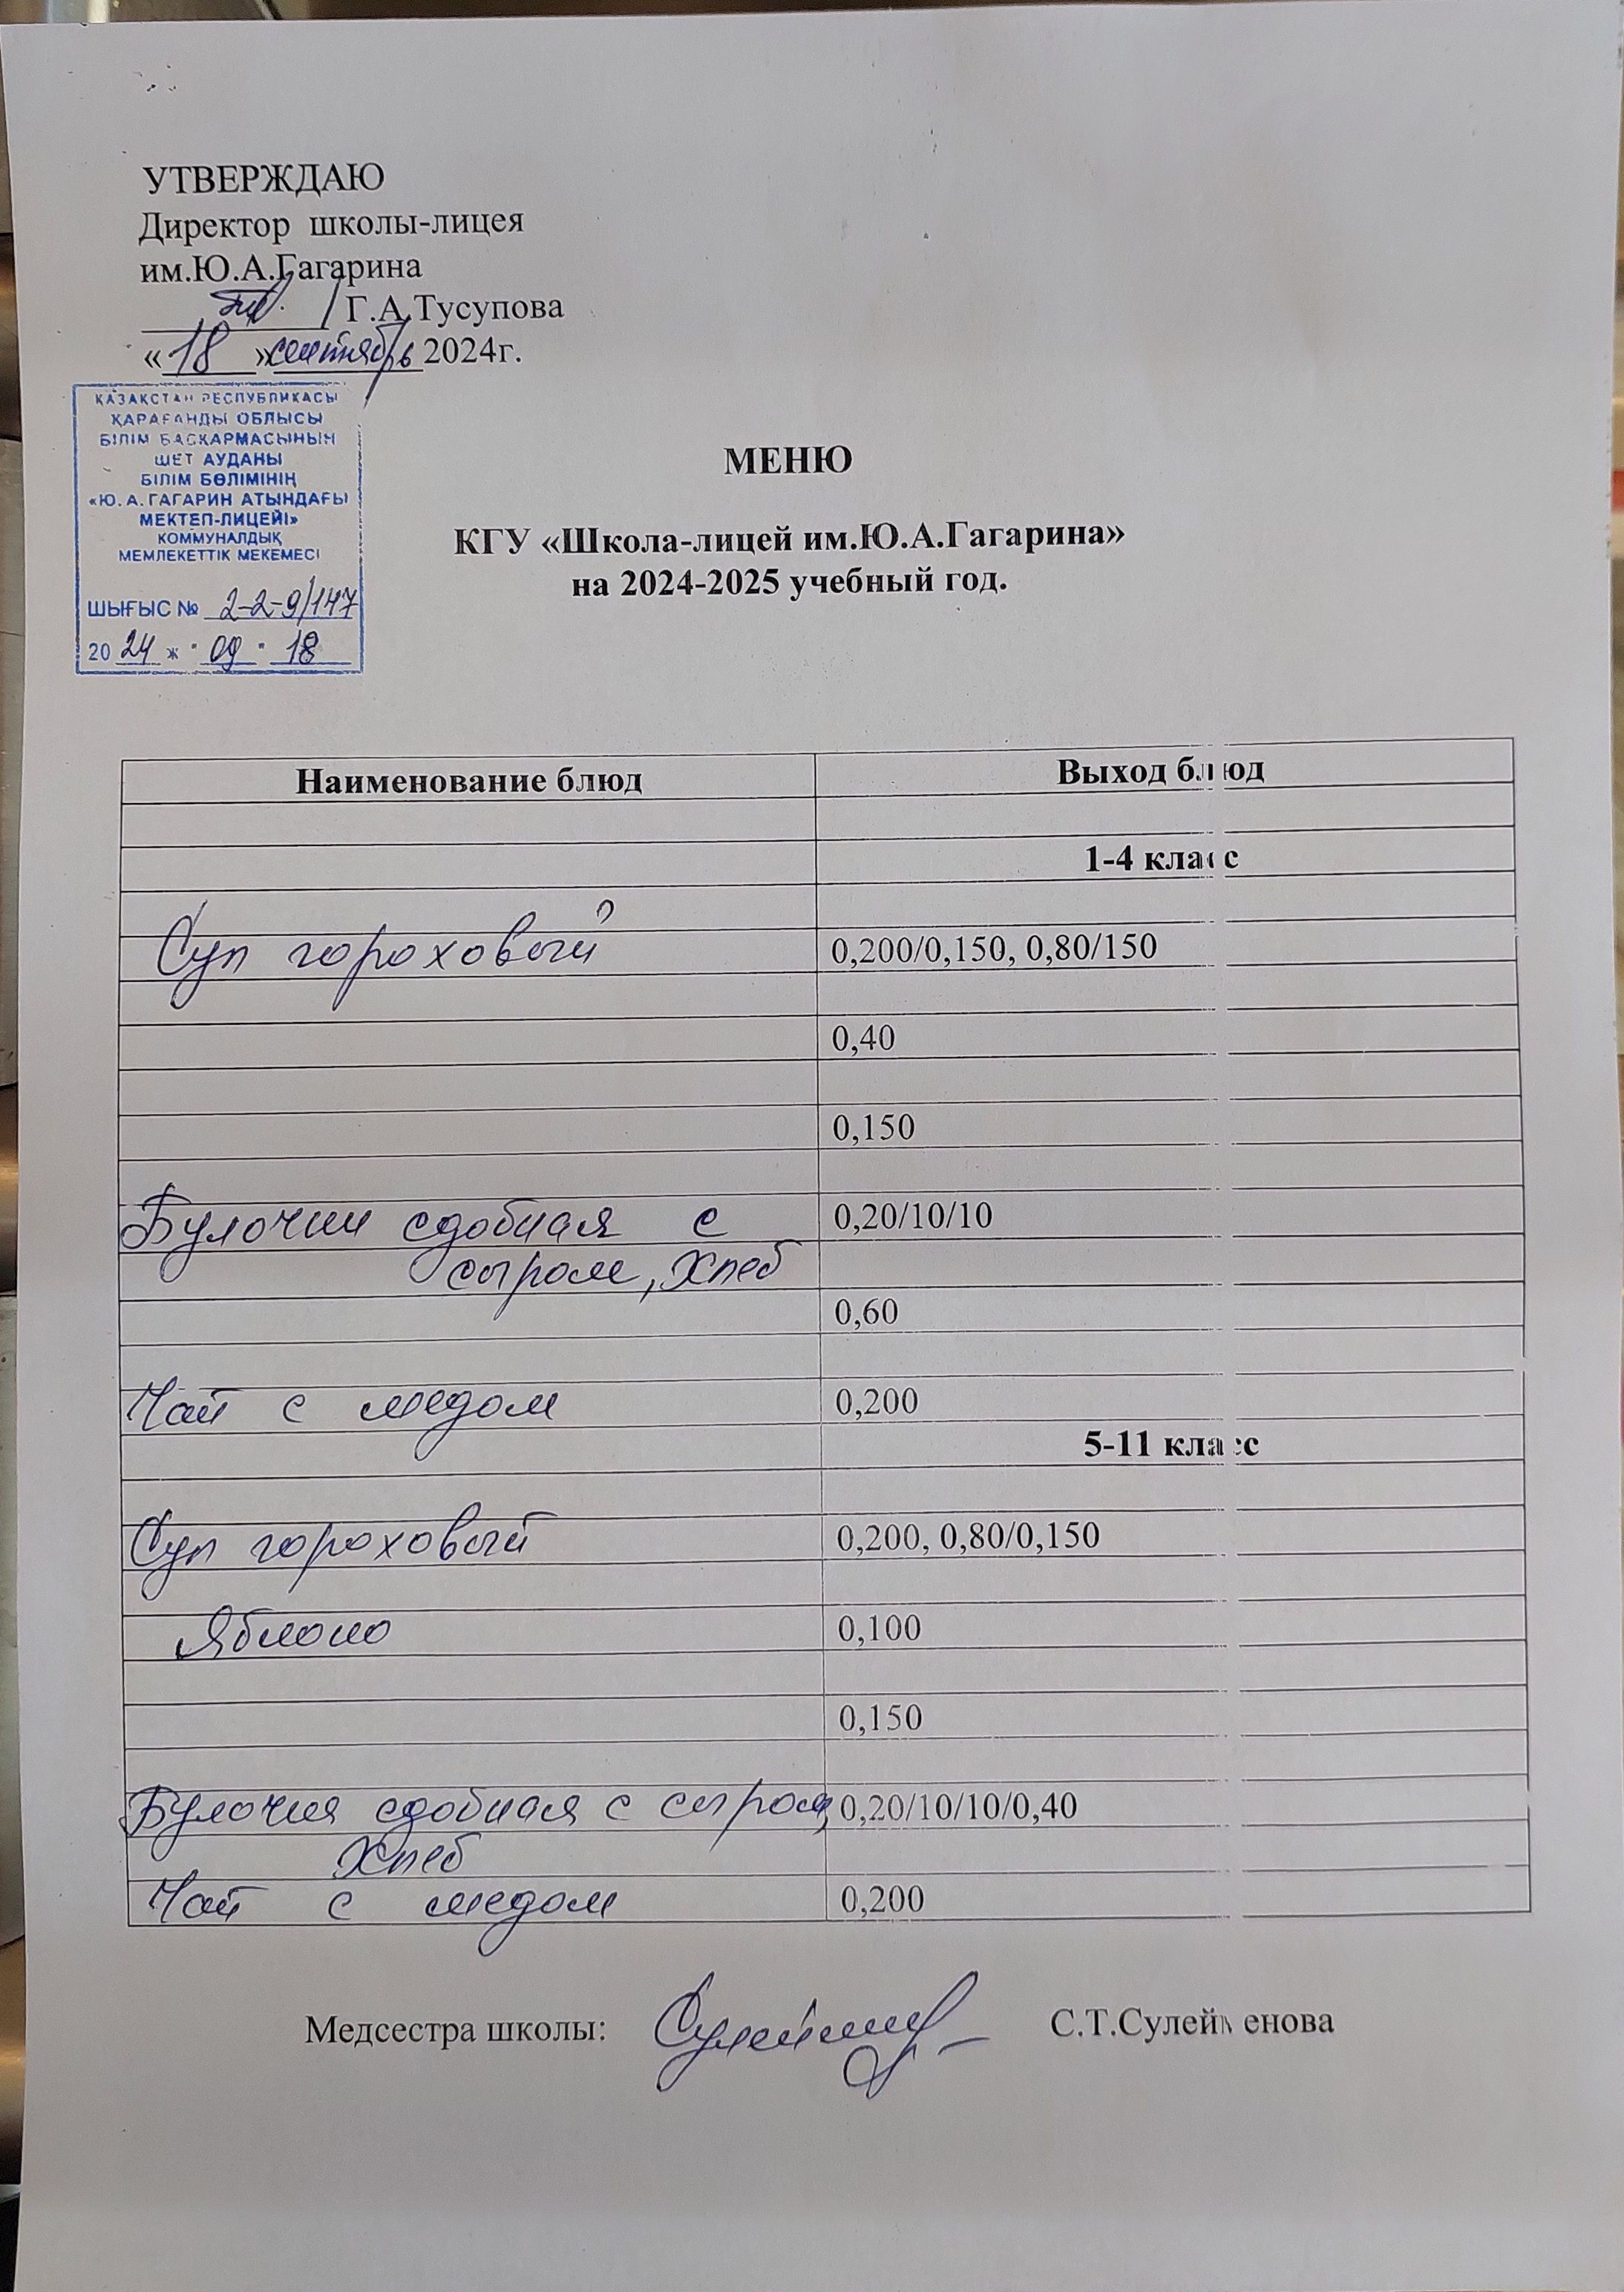 УТВЕРЖДАЮ
Директор школы-лицея
им.Ю.А.Гагарина
/ Г.А.Тусупова
«18» сентябрь 2024г.
ҚАЗАҚСТАН РЕСПУБЛИКАСЫ
ҚАРАҒАНДЫ ОБЛЫСЫ
БІЛІМ БАСҚАРМАСЫНЫҢ
ШЕТ АУДАНЫ
БІЛІМ БӨЛІМІНІҢ
«Ю. А. ГАГАРИН АТЫНДАҒЫ
МЕКТЕП-ЛИЦЕЙІ»
КОММУНАЛДЫҚ
МЕМЛЕКЕТТІК МЕКЕМЕСІ
ШЫҒЫС № 2-2-9/147
20 24 ж " 09 " 18
МЕНЮ
КГУ «Школа-лицей им.Ю.А.Гагарина»
на 2024-2025 учебный год.
Наименование блюд Выход блюд
1-4 класс
Суп гороховый 0,200/0,150, 0,80/150
0,40
0,150
Булочки сдобная с 0,20/10/10
сыром, Хлеб
0,60
Чай с медом 0,200
5-11 класс
Суп гороховый 0,200, 0,80/0,150
Яблоко 0,100
0,150
Булочка сдобная с сыром, 0,20/10/10/0,40
Хлеб
Чай с медом 0,200
Медсестра школы: С.Т.Сулейменова